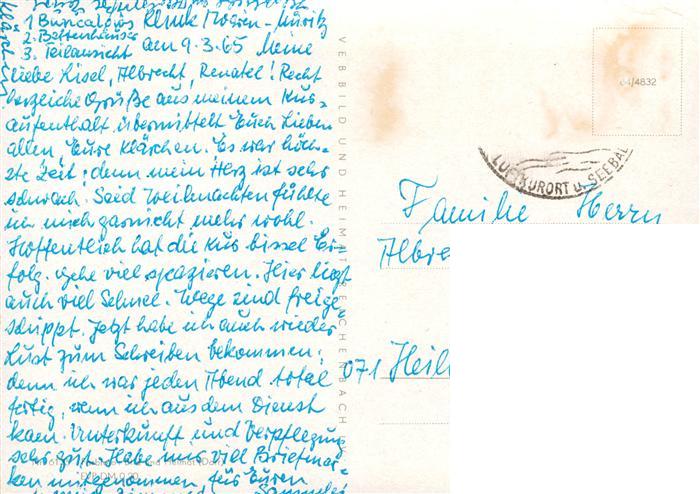 1 Bungalows Klink Waren-Müritz
2. Bettenhäuser
3. Teilansicht am 9.3.65 Meine
liebe Lisel, Albrecht, Renate! Recht
herzliche Grüße aus meinem Kur-
aufenthalt, übermittelt Euch Lieben
allen, Eure Klärchen. Es war höch-
ste Zeit; denn mein Herz ist sehr
schwach. Seid Weihnachten fühlte
ich mich garnicht mehr wohl.
Hoffentlich hat die Kur bissel Er-
folg. Gehe viel spazieren. Hier liegt
auch viel Schnee. Wege sind freige-
schippt. Jetzt habe ich auch wieder
Lust zum Schreiben bekommen;
denn ich war jeden Abend total
fertig, wenn ich aus dem Dienst
kam. Unterkunft und Verpflegung
sehr gut. Habe mir viel Briefmar-
ken mitgenommen, für Euren
Klärchen
VEB BILD UND HEIMAT REICHENBACH
04/4832
LUFTKURORT u. SEEBAD
Familie Herrn
Albre
071 Heil